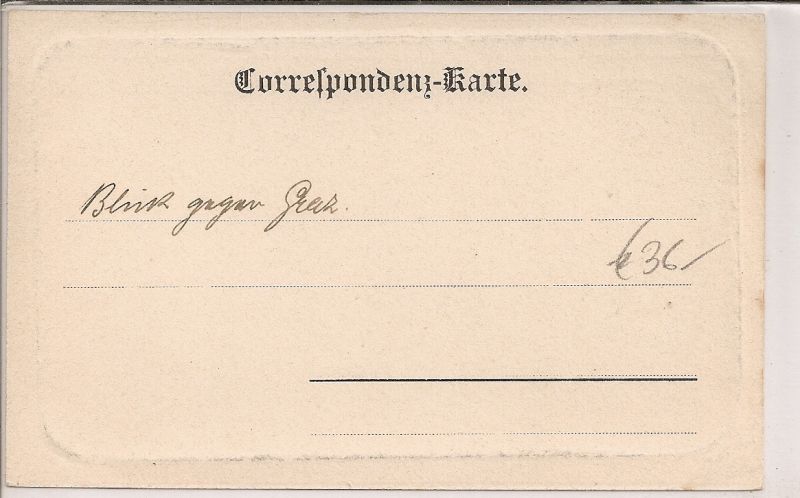 Correſpondenz-Karte.
Blick gegen Graz.
€ 36-